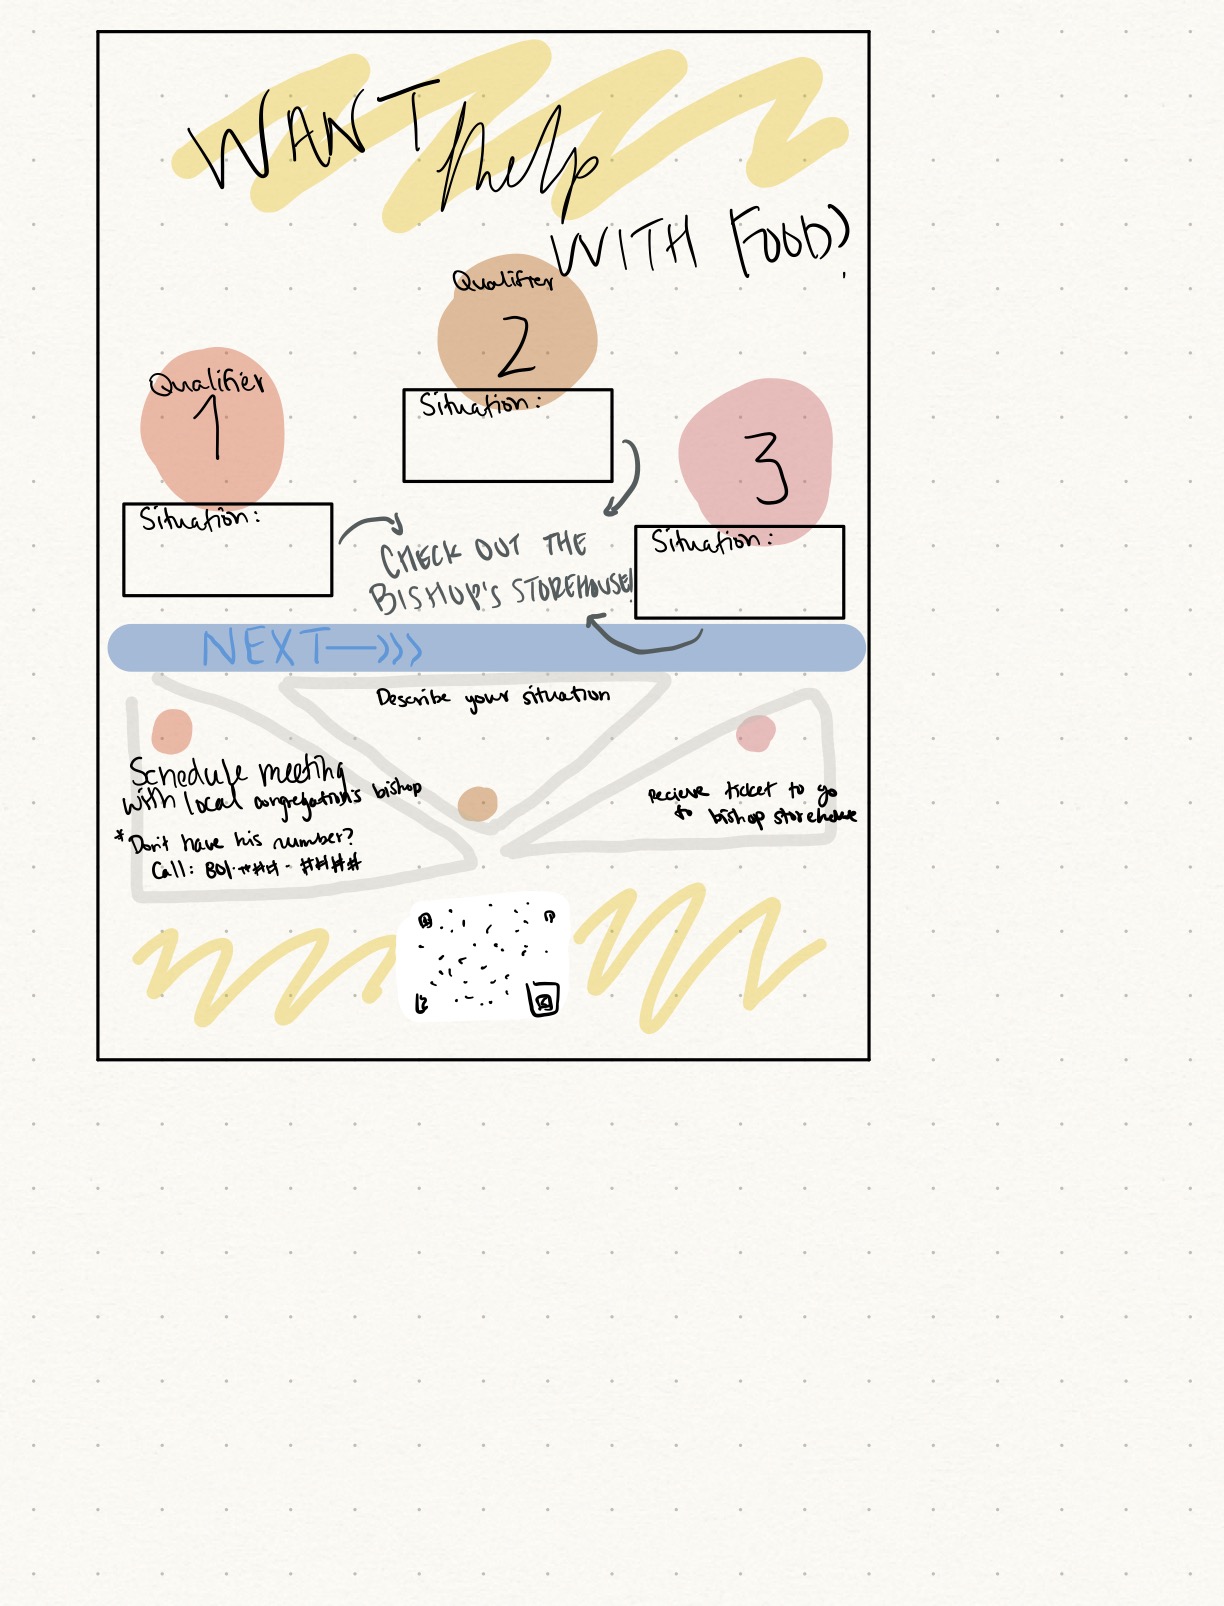 WANT help
WITH FOOD?
Qualifier
2
Qualifier
1
3
Situation:
Situation:
Situation:
CHECK OUT THE
BISHOP'S STOREHOUSE!
NEXT
Describe your situation
Schedule meeting
with local congregation's bishop
*Don't have his number?
Call: 801-###-####
Recieve ticket to go
to bishop storehouse